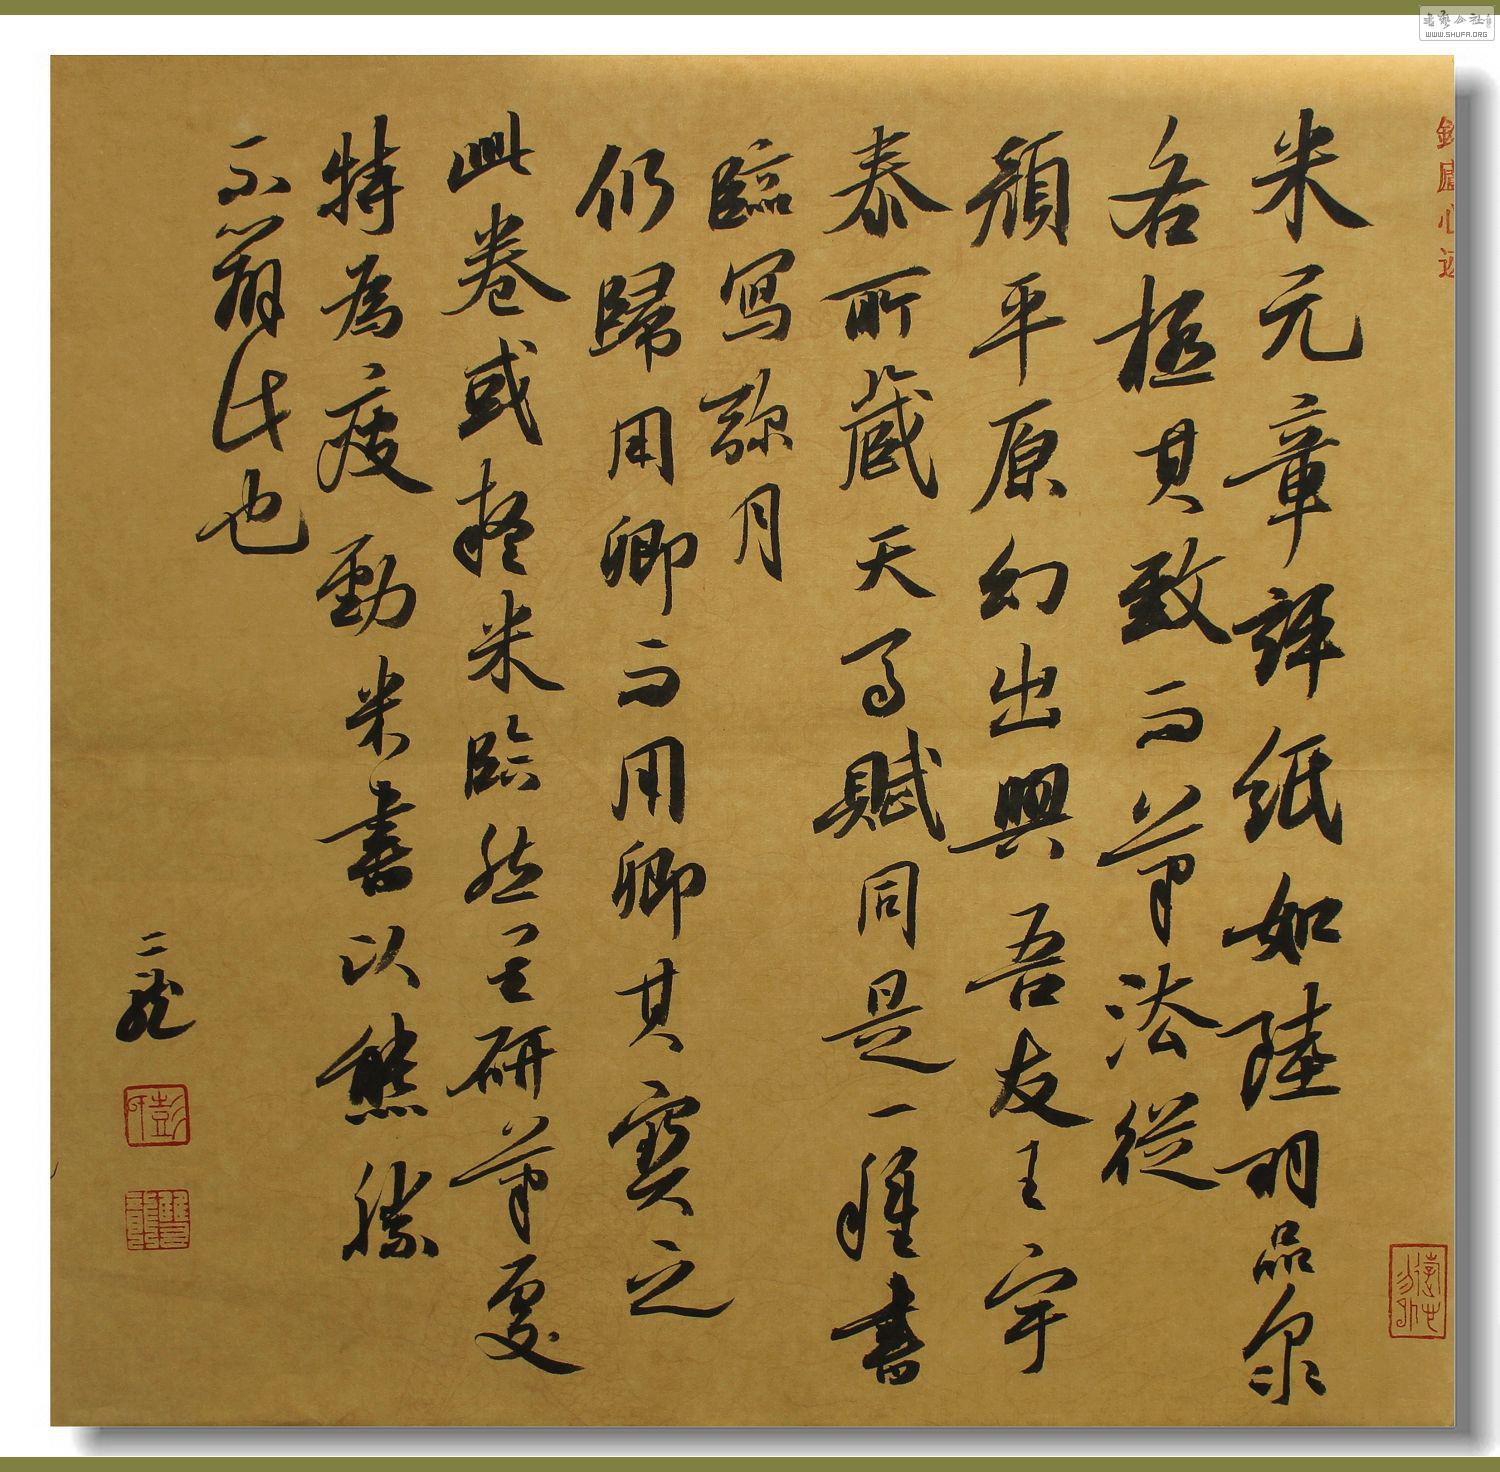 米元章評紙如陸羽品泉
各極其致而筆法從
顏平原幻出與吾友王宇
泰所藏天馬賦同是一種書
臨寫彌月
仍歸用卿而用卿其寶之
此卷或擬米臨然是研筆更
特為疲勁米書以態勝
不翁氏也
二龍
書藝公社
WWW.SHUFA.ORG